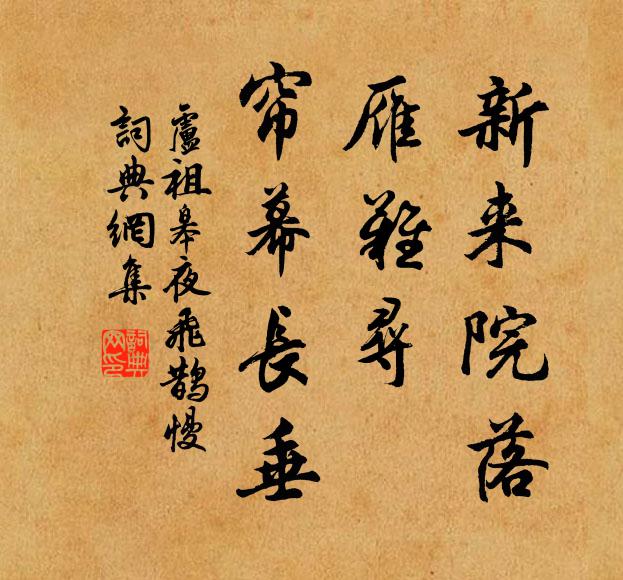 新来院落
雁难寻
帘幕長垂
盧祖皋夜飛鹊慢
詞典網集
詞典网印